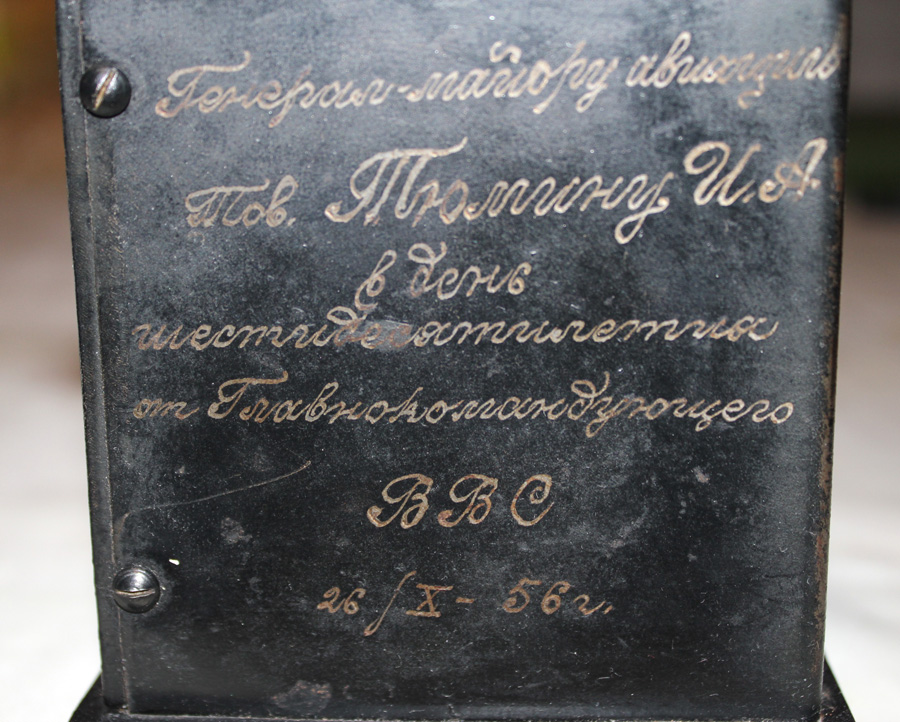 Генерал-майору авиации
Тов. Тюмину И.А.
в день
шестидесятилетия
от Главнокомандующего
ВВС
26/X- 56г.